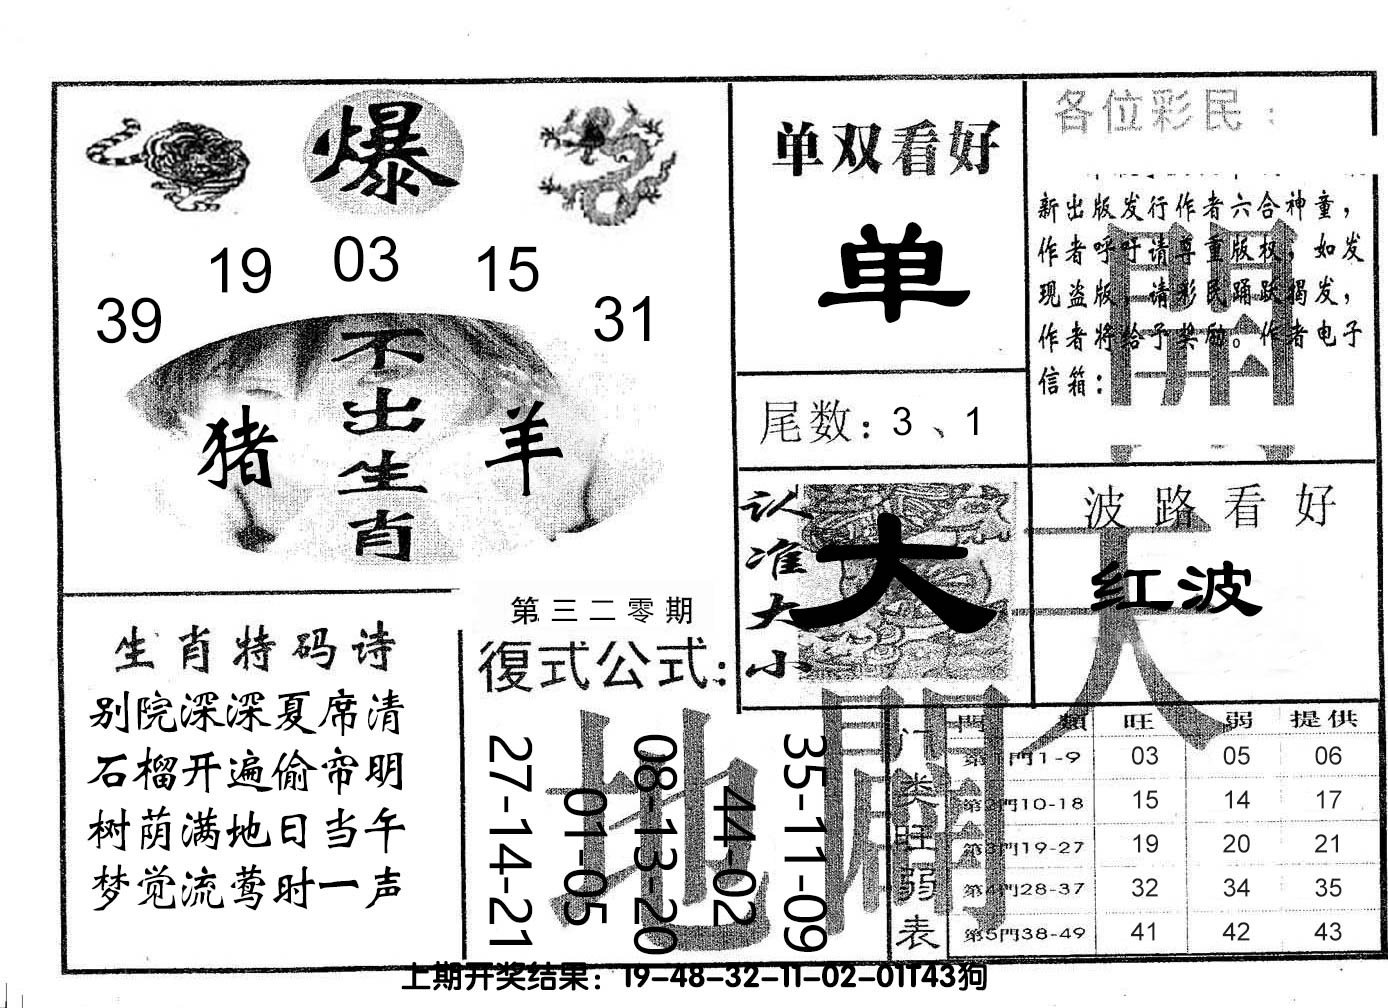 爆
19 03 15
39 31
不出生肖
猪 羊
单双看好
单
尾数：3、1
各位彩民：
新出版发行作者六合神童，
作者呼吁请尊重版权，如发
现盗版，请彩民踊跃揭发，
作者将给予奖励。作者电子
信箱：
认准大小
大
波路看好
红波
天開
地闢
生肖特码诗
别院深深夏席清
石榴开遍偷帘明
树荫满地日当午
梦觉流莺时一声
第三二零期
復式公式：
27-14-21
01-05
08-13-20
44-02
35-11-09
门类旺弱表
門類 旺 弱 提供
第1門1-9 03 05 06
第2門10-18 15 14 17
第3門19-27 19 20 21
第4門28-37 32 34 35
第5門38-49 41 42 43
上期开奖结果：19-48-32-11-02-01T43狗